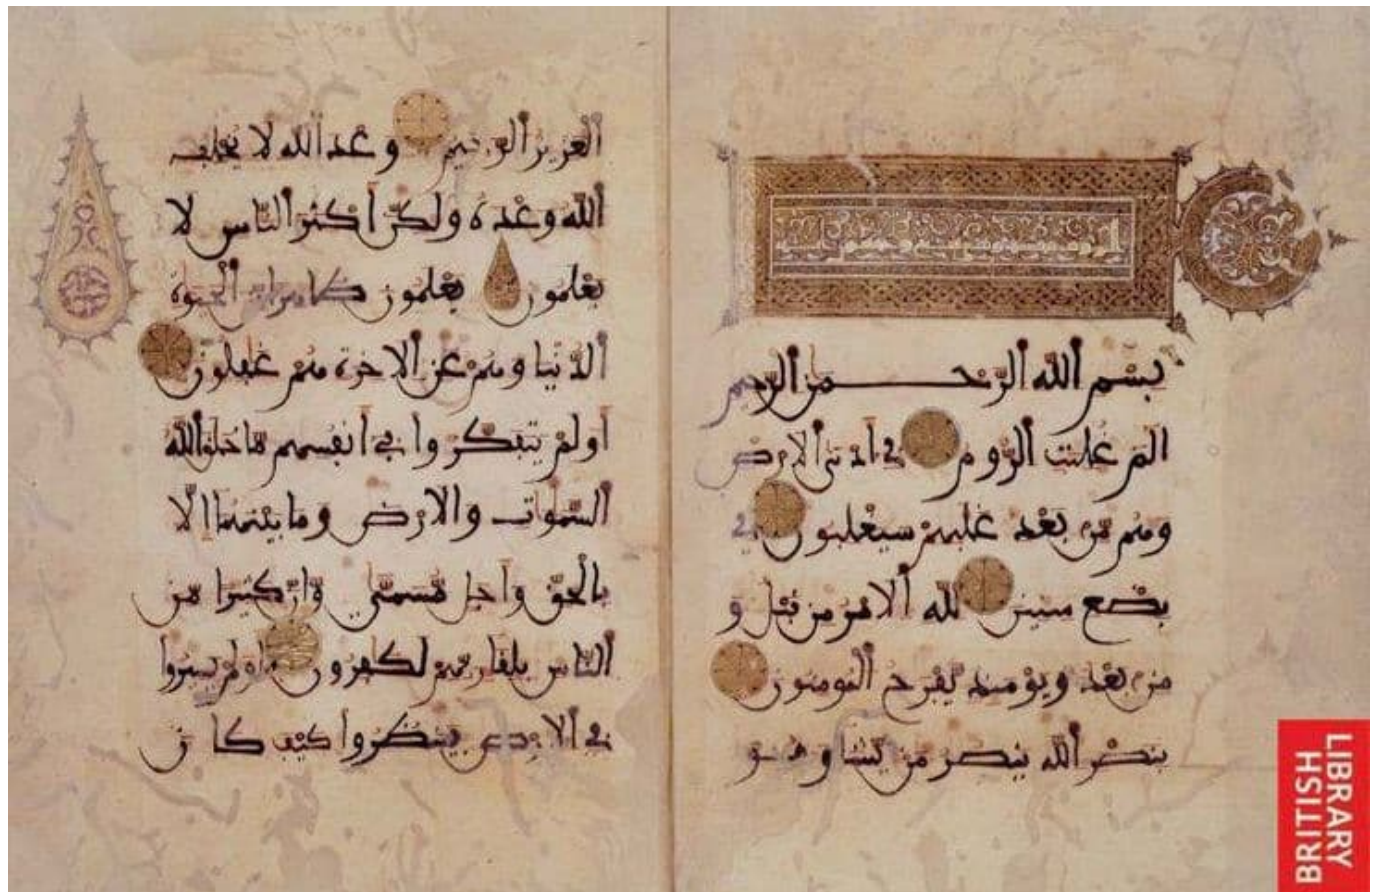 بسم الله الرحمن الرحيم
الم غلبت الروم في أدنى الأرض
وهم من بعد غلبهم سيغلبون في
بضع سنين لله الأمر من قبل و
من بعد ويومئذ يفرح المؤمنون
بنصر الله ينصر من يشاء وهو
العزيز الرحيم وعد الله لا يخلف
الله وعده ولكن أكثر الناس لا
يعلمون يعلمون ظاهرا من الحيوة
الدنيا وهم عن الآخرة هم غفلون
أولم يتفكروا في أنفسهم ما خلق الله
السموات والأرض وما بينهما إلا
بالحق وأجل مسمى وإن كثيرا من
الناس بلقاء ربهم لكفرون أولم يسيروا
في الأرض فينظروا كيف كان
BRITISH
LIBRARY